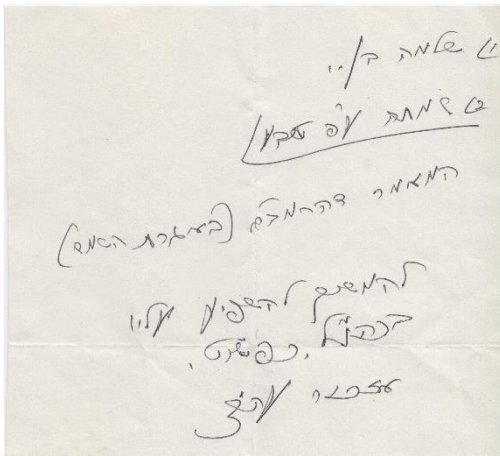 א) שלמה ב/..
ב) שמחה ע"פ טבע/
המאמר דהרמב"ם (באגרת השמד)
להמשיך להשפיע עליו
בכהנ"ל, כפשוט.
אזכיר עה"צ